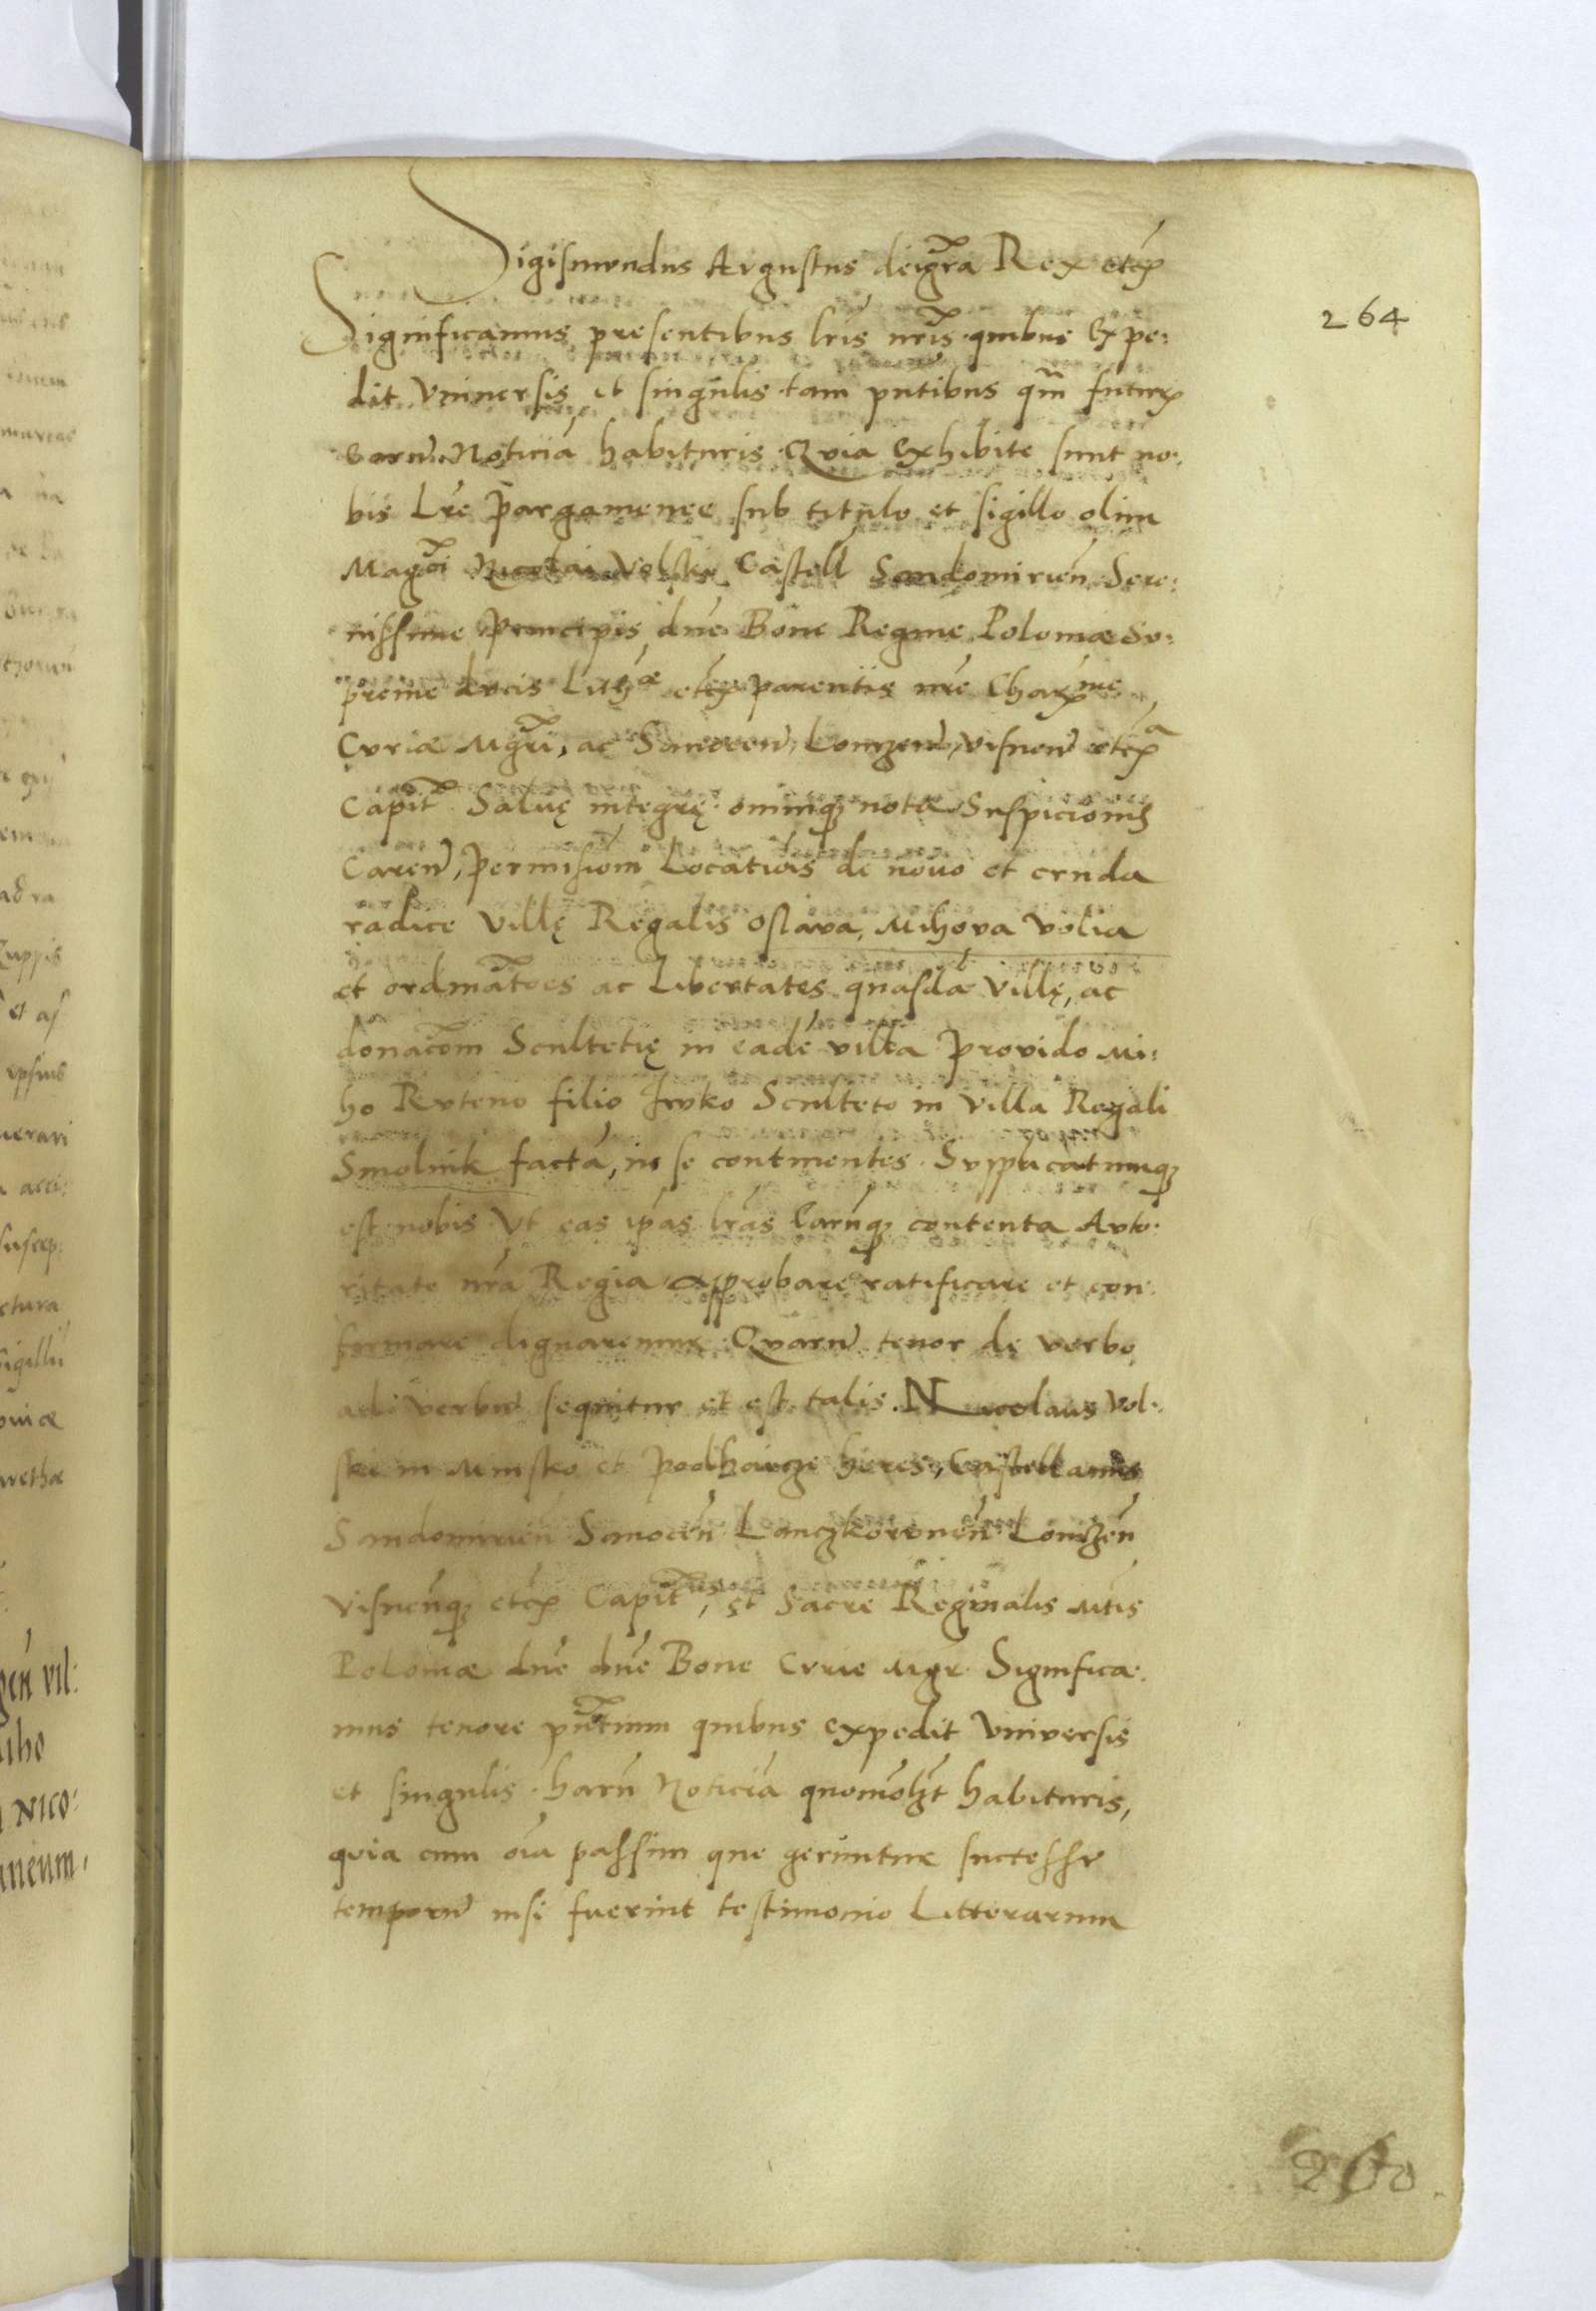 Sigismundus Augustus dei gra Rex etc
264
Significamus presentibus lris nris quibus Expe:
dit Universis et singulis tam pntibus qm futuris
earum Noticia habituris Quia Exhibite sunt no:
bis Lre Pargamenee sub titulo et sigillo olim
Magci Nicolai Volski Castell Sandomirien Sere:
nissime Principis dne Bone Regine Poloniæ Su:
preme ducis Lithæ etc parentis nre Charme
Curiæ Mgri, ac Sanocen, Lomzen, visnen etca
Capit Saluę integrę omniq note Suspicionis
Caren, Permisionem Locatiois de nouo et cruda
radice villę Regalis Oslava, Mihova volia
et ordinatoes ac Libertates quasda Villę, ac
donacom Scultetię in eade villa provido Mi:
ho Ruteno filio Ivko Sculteto in Villa Regali
Smolnik facta, in se continentes. Supplicatumq
est nobis Ut eas ipas lras Earuq contenta Auto:
ritate nra Regia approbare ratificare et con:
firmare dignaremur Quarum tenor de verbo
ad verbum sequitur et est talis. Nicolaus Vol:
ski in Minsko et Podhaicze heres, Castellanus
Sandomirien Sanocen Lanczkoronen Lomzen
Visnenq etc Capitus, et Sacre Reginalis Mtis
Poloniæ dne dne Bone Curie Mgr. Significa:
mus tenore pntium quibus expedit Universis
et singulis haru Noticia quomolzt habituris,
quia cum oia passim que geruntur successu
temporum nisi fuerint testimonio Litterarum
260